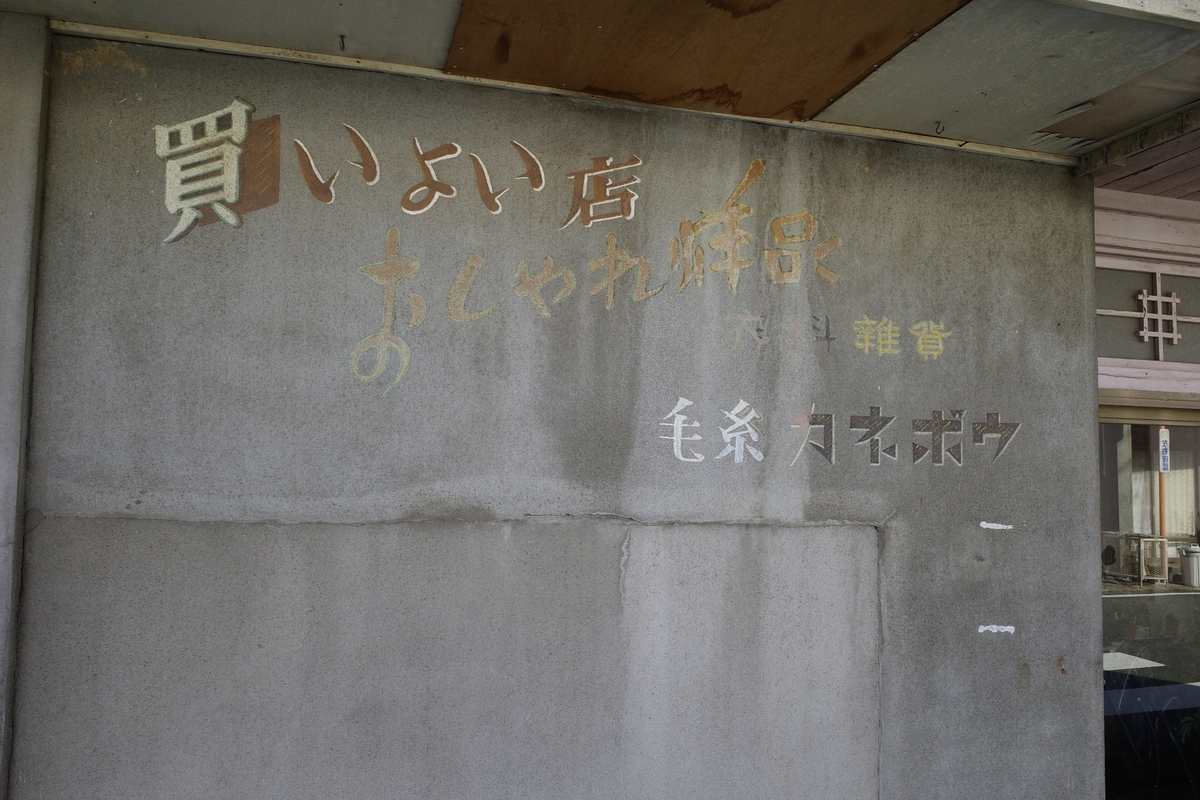 買いよい店
おしゃれ洋品
衣料 雑貨
毛糸 カネボウ